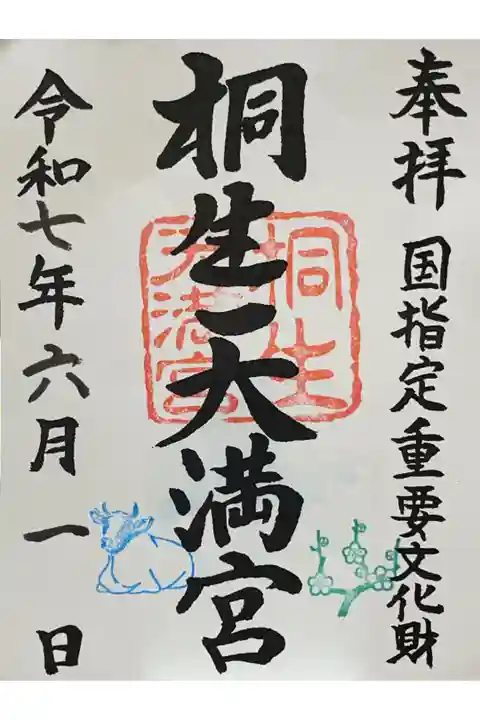 奉拝 国指定重要文化財
桐生天満宮
桐生
天満宮
令和七年六月一日